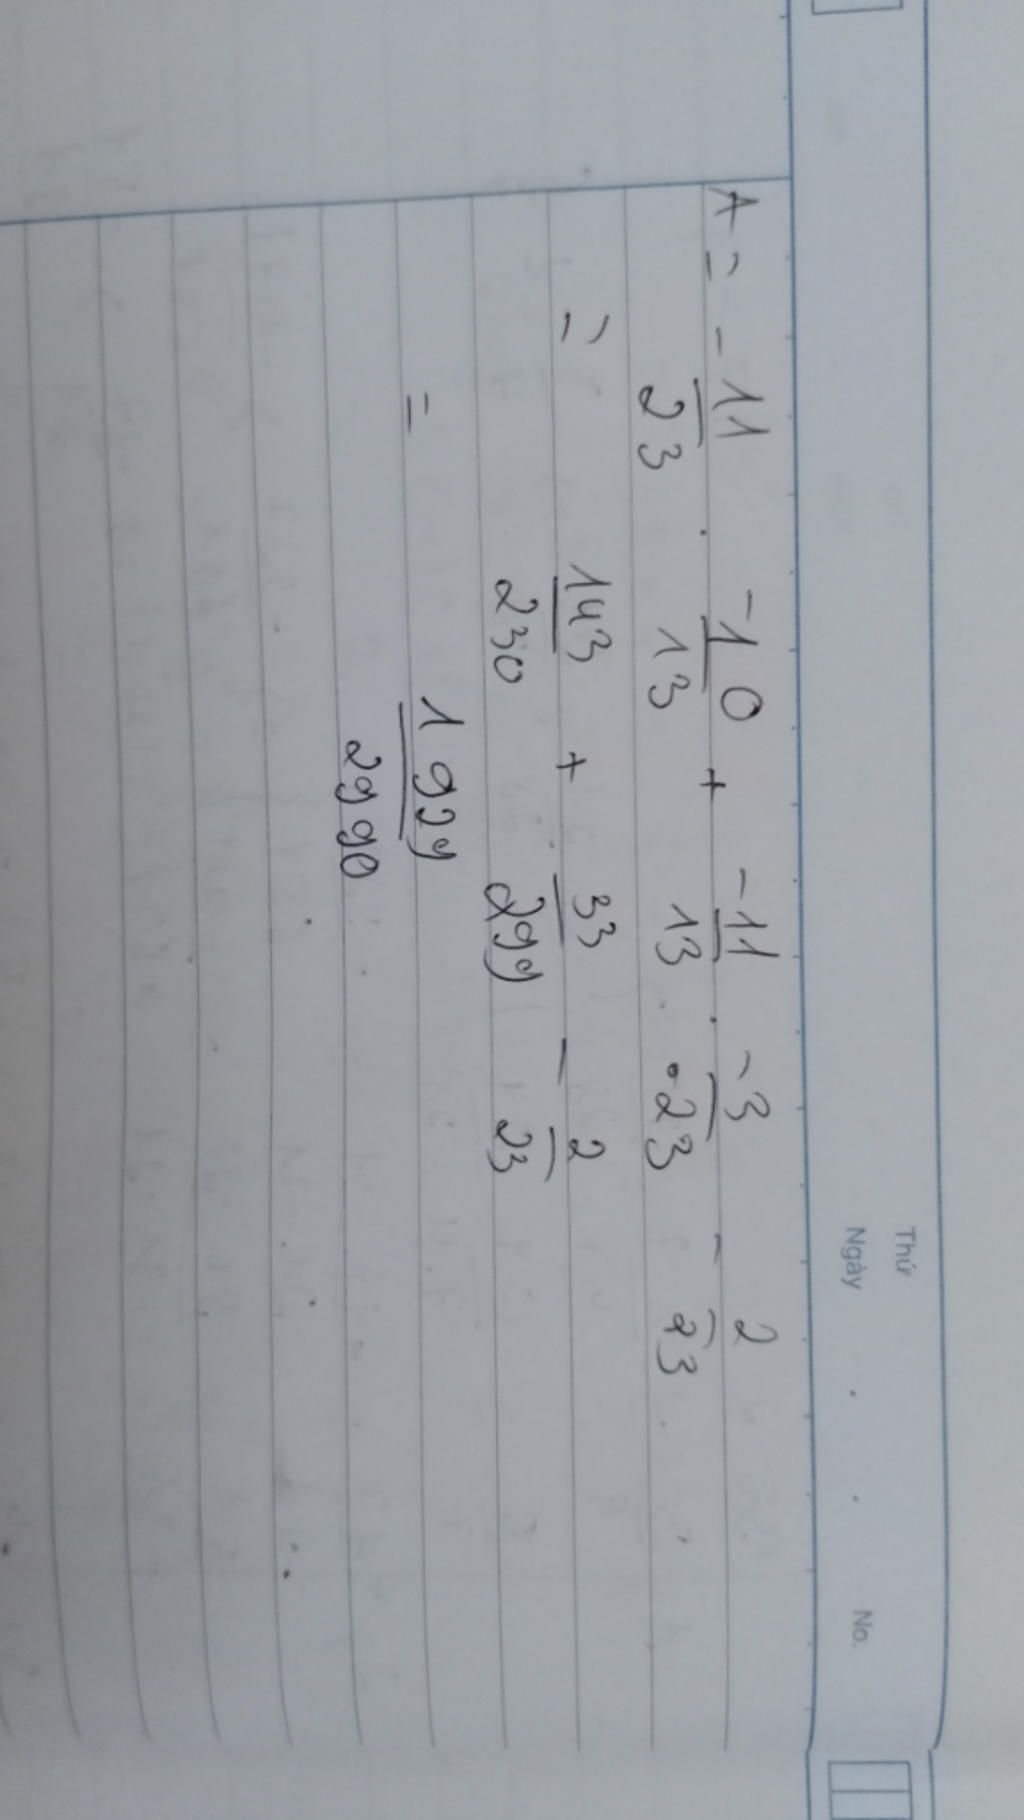 Thứ
Ngày . . No.
A = -11/23 . -10/13 + -11/13 . -3/23 - 2/23
= 143/230 + 33/299 - 2/23
= 1929/2990